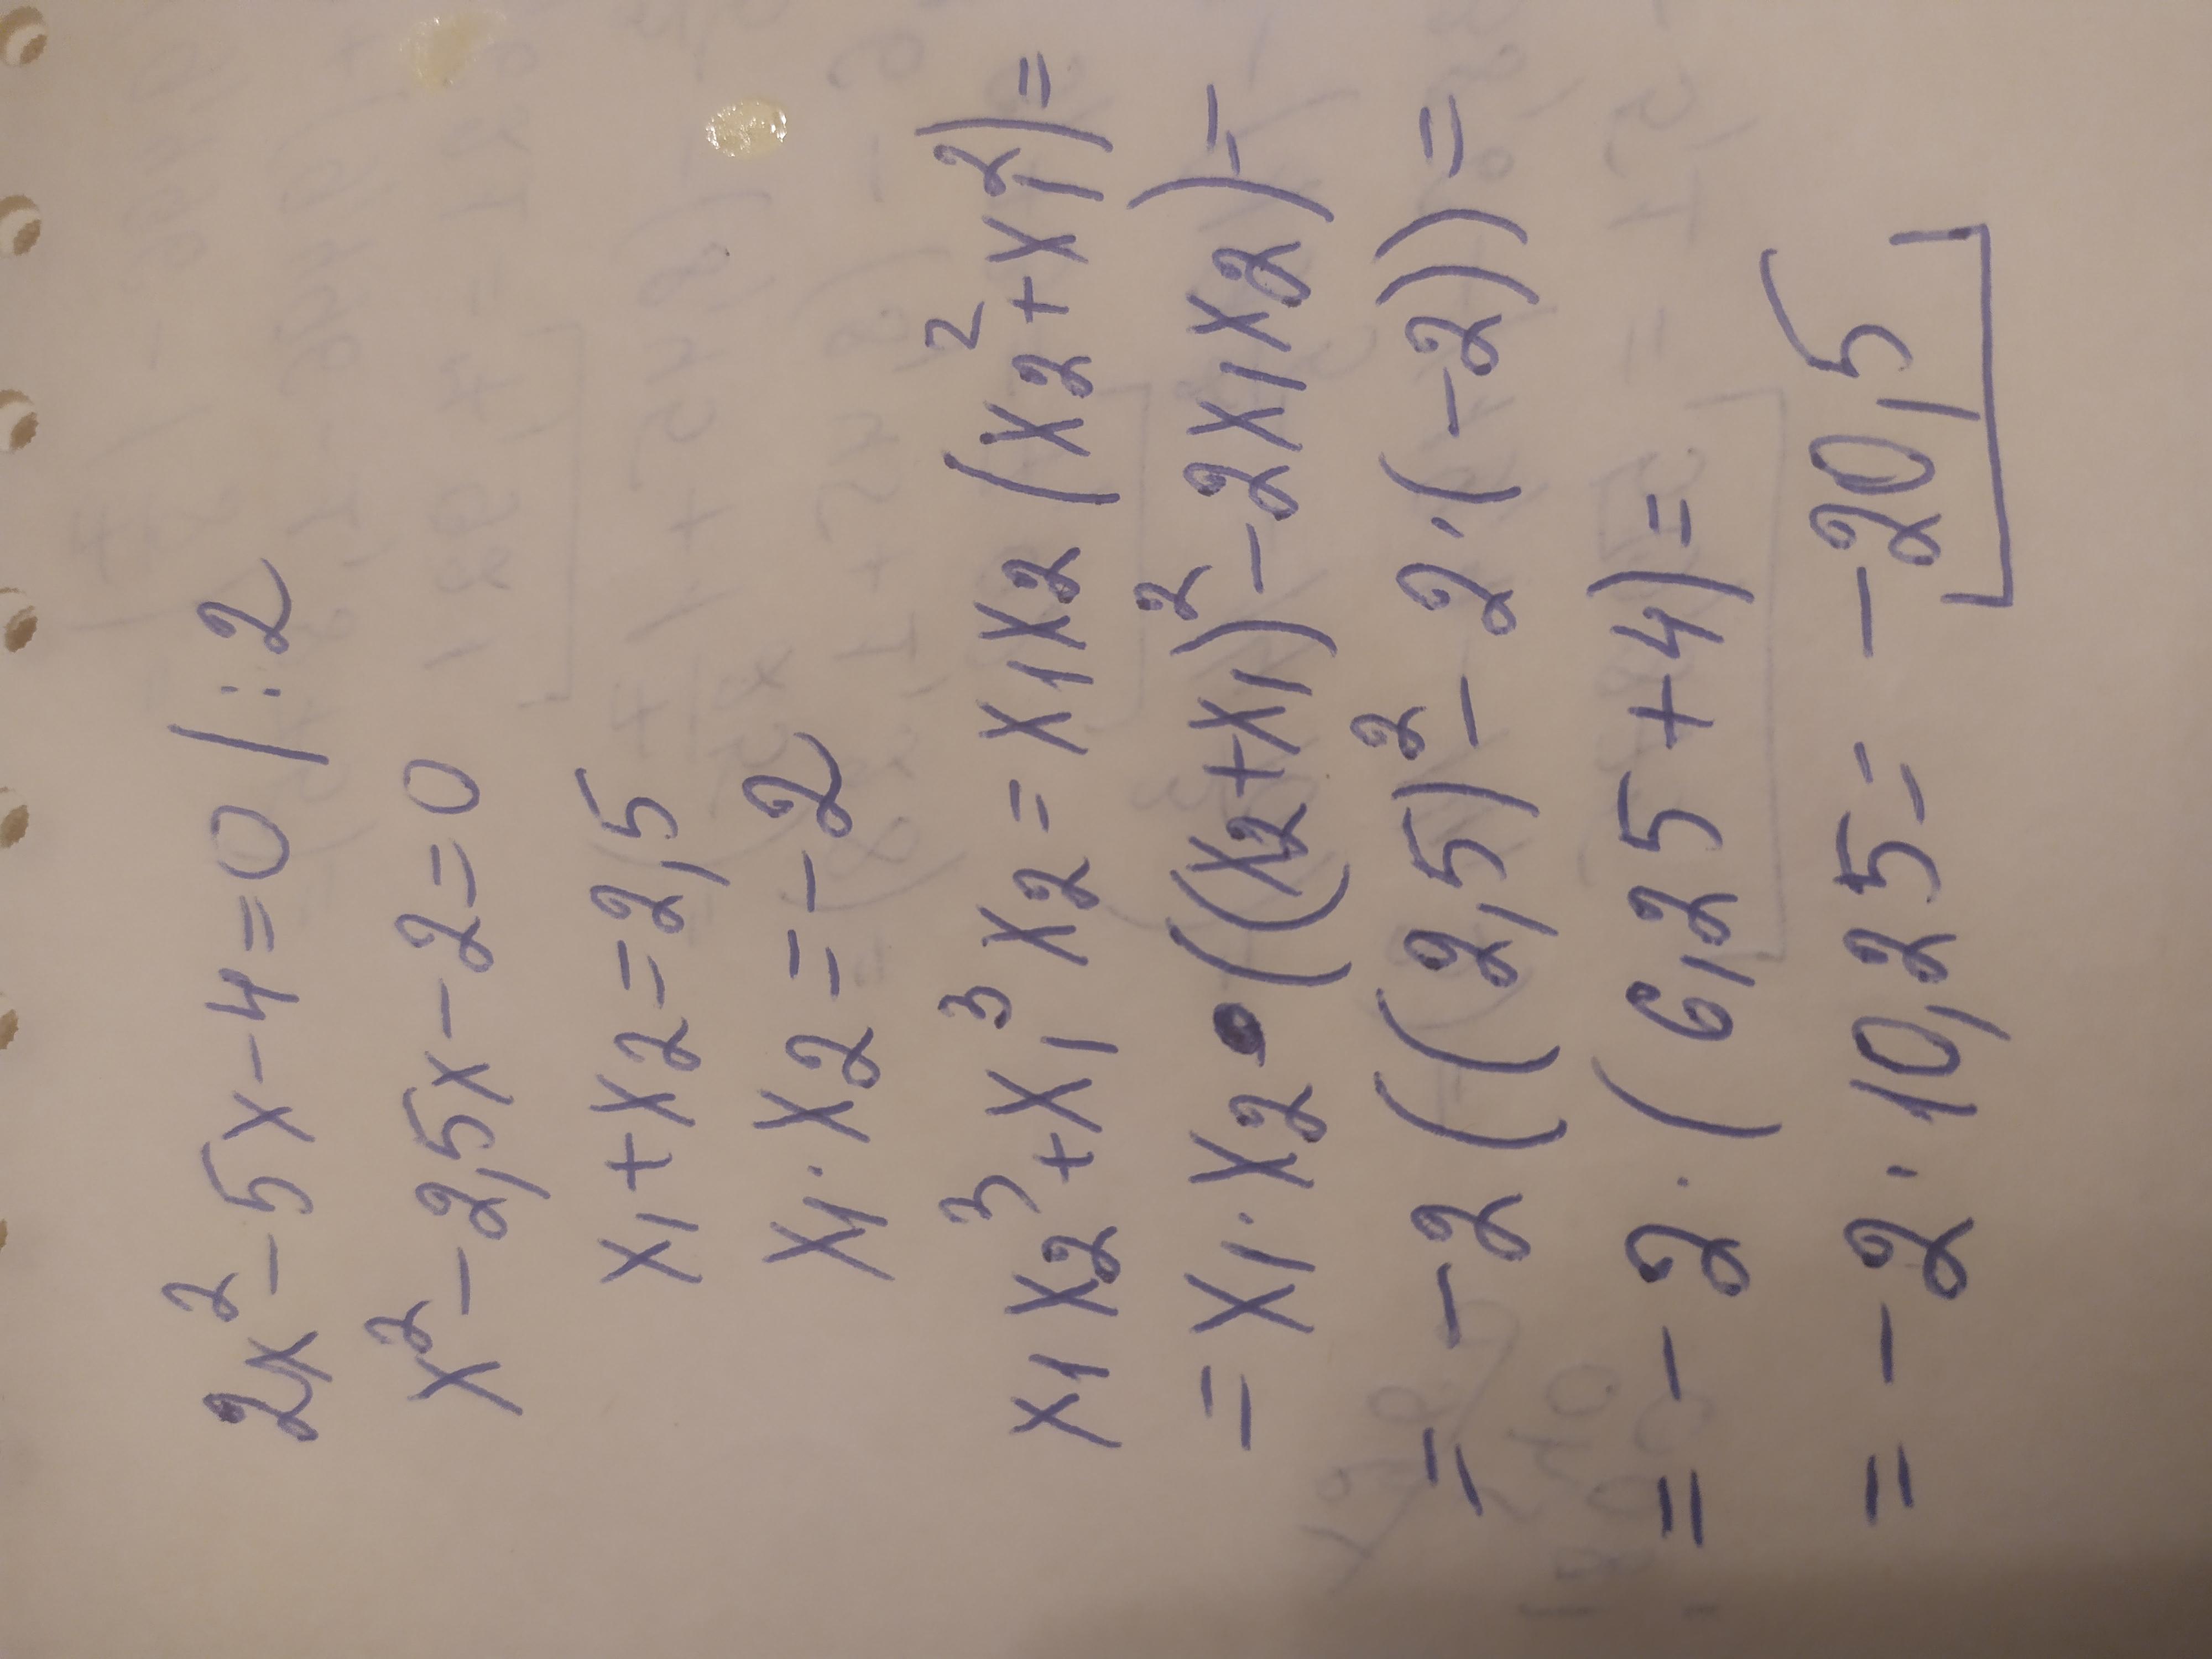 2x² - 5x - 4 = 0 | : 2
x² - 2,5x - 2 = 0
x₁ + x₂ = 2,5
x₁ · x₂ = -2
x₁x₂³ + x₁³x₂ = x₁x₂ (x₂² + x₁²) =
= x₁ · x₂ · ((x₂ + x₁)² - 2x₁x₂) =
= -2 ((2,5)² - 2 · (-2)) =
= -2 · (6,25 + 4) =
= -2 · 10,25 = -20,5